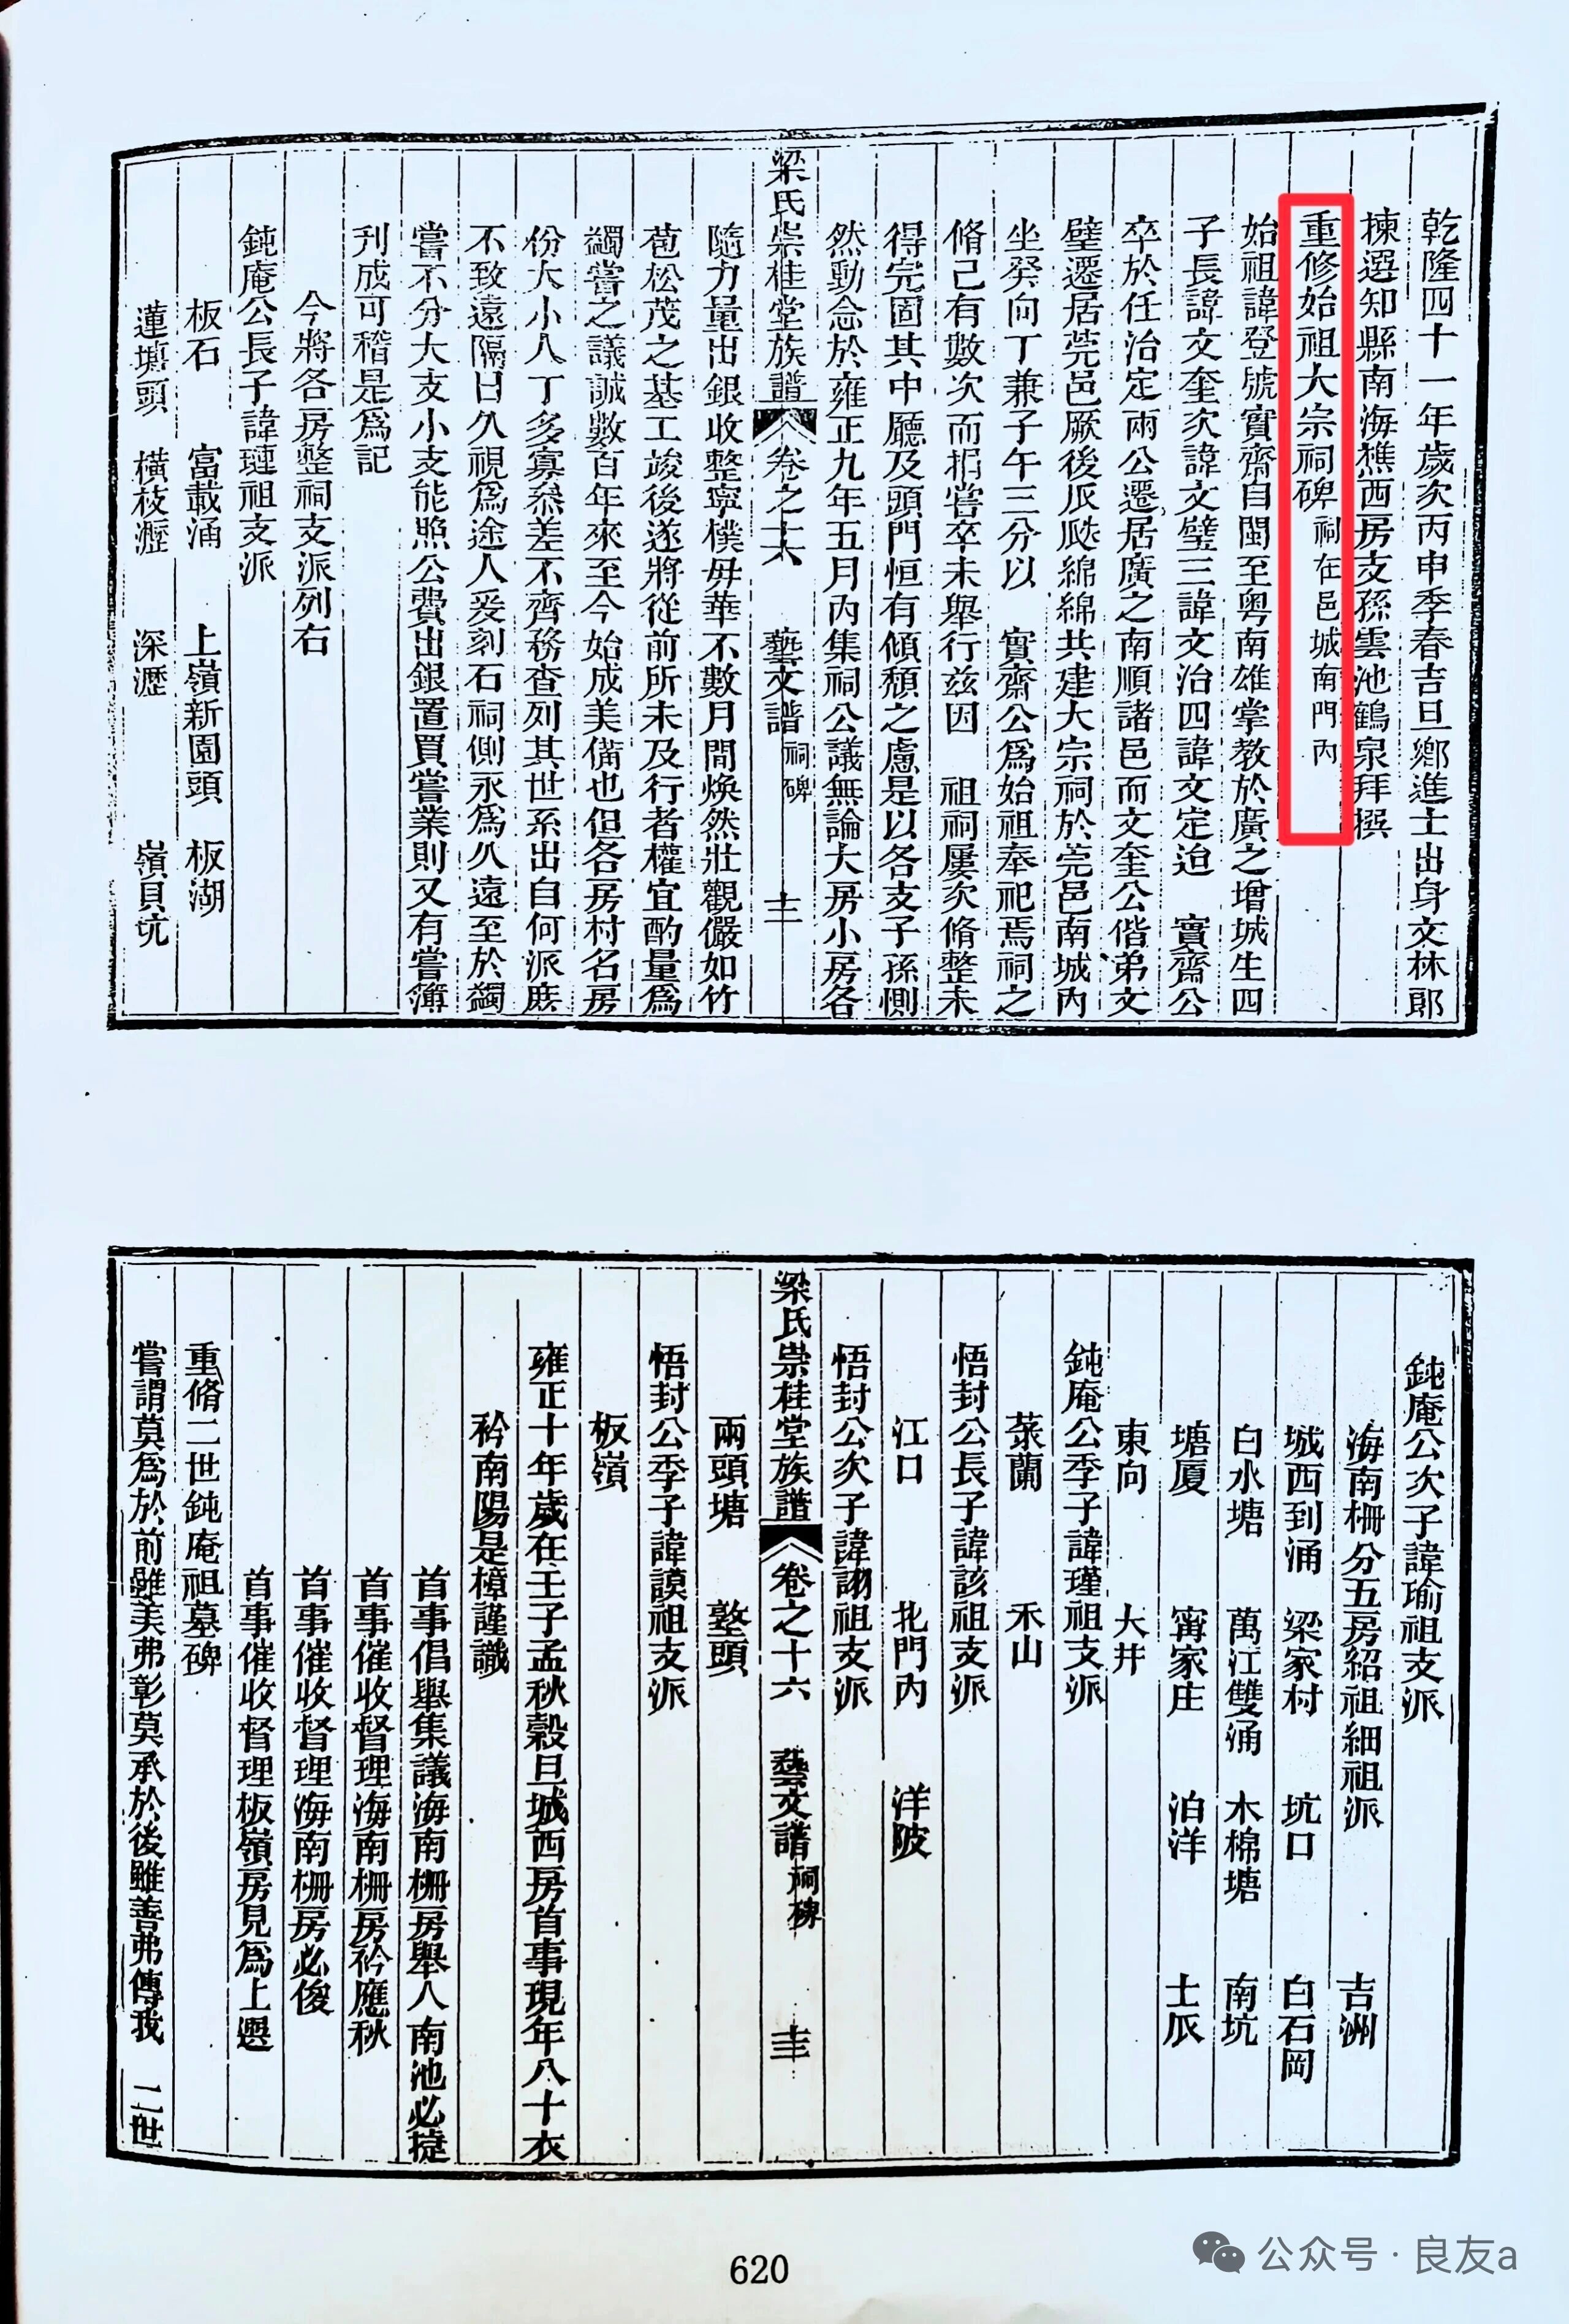 乾隆四十一年歲次丙申季春吉旦鄉進士出身文林郎
棟選知縣南海樵西房支孫雲池鶴泉拜撰
重修始祖大宗祠碑祠在邑城南門內
始祖諱登號實齋自閩至粤南雄掌教於廣之增城生四
子長諱文奎次諱文璧三諱文治四諱文定迨 實齋公
卒於任治定兩公遷居廣之南順諸邑而文奎公偕弟文
璧遷居莞邑厥後瓜瓞綿綿共建大宗祠於莞邑南城內
坐癸向丁兼子午三分以 實齋公爲始祖奉祀焉祠之
脩己有數次而捐嘗卒未舉行兹因 祖祠屢次脩整未
得完固其中廳及頭門恒有傾頹之慮是以各支子孫惻
然動念於雍正九年五月內集祠公議無論大房小房各
梁氏崇桂堂族譜 卷之十六 藝文譜祠碑 十二
隨力量出銀收整寧樸毋華不數月間煥然壯觀儼如竹
苞松茂之基工竣後遂將從前所未及行者權宜酌量爲
蠲嘗之議誠數百年來至今始成美僃也但各房村名房
份大小人丁多寡叅差不齊務查列其世系出自何派庶
不致遠隔日久視爲途人爰刻石祠側永爲久遠至於蠲
嘗不分大支小支能照公費出銀置買嘗業則又有嘗簿
刋成可稽是爲記
今將各房整祠支派列右
鈍庵公長子諱璉祖支派
板石 富載涌 上嶺新園頭 板湖
蓮塘頭 橫枝瀝 深瀝 嶺貝坑
鈍庵公次子諱瑜祖支派
海南柵分五房紹祖細祖派 吉洲
城西到涌 梁家村 坑口 白石岡
白水塘 萬江雙涌 木棉塘 南坑
塘廈 甯家庄 泊洋 土瓜
東向 大井
鈍庵公季子諱瑾祖支派
菉蘭 禾山
悟封公長子諱該祖支派
江口 北門內 洋陂
悟封公次子諱詡祖支派
梁氏崇桂堂族譜 卷之十六 藝文譜祠碑 十三
兩頭塘 墪頭
悟封公季子諱謨祖支派
板嶺
雍正十年歲在壬子孟秋穀旦城西房首事現年八十衣
衿南陽是樟謹識
首事倡舉集議海南柵房舉人南池必㨗
首事催收督理海南柵房衿應秋
首事催收督理海南柵房必俊
首事催收督理板嶺房見爲上選
重脩二世鈍庵祖墓碑
嘗謂莫爲於前雖美弗彰莫承於後雖善弗傳我 二世
620
公众号·良友a